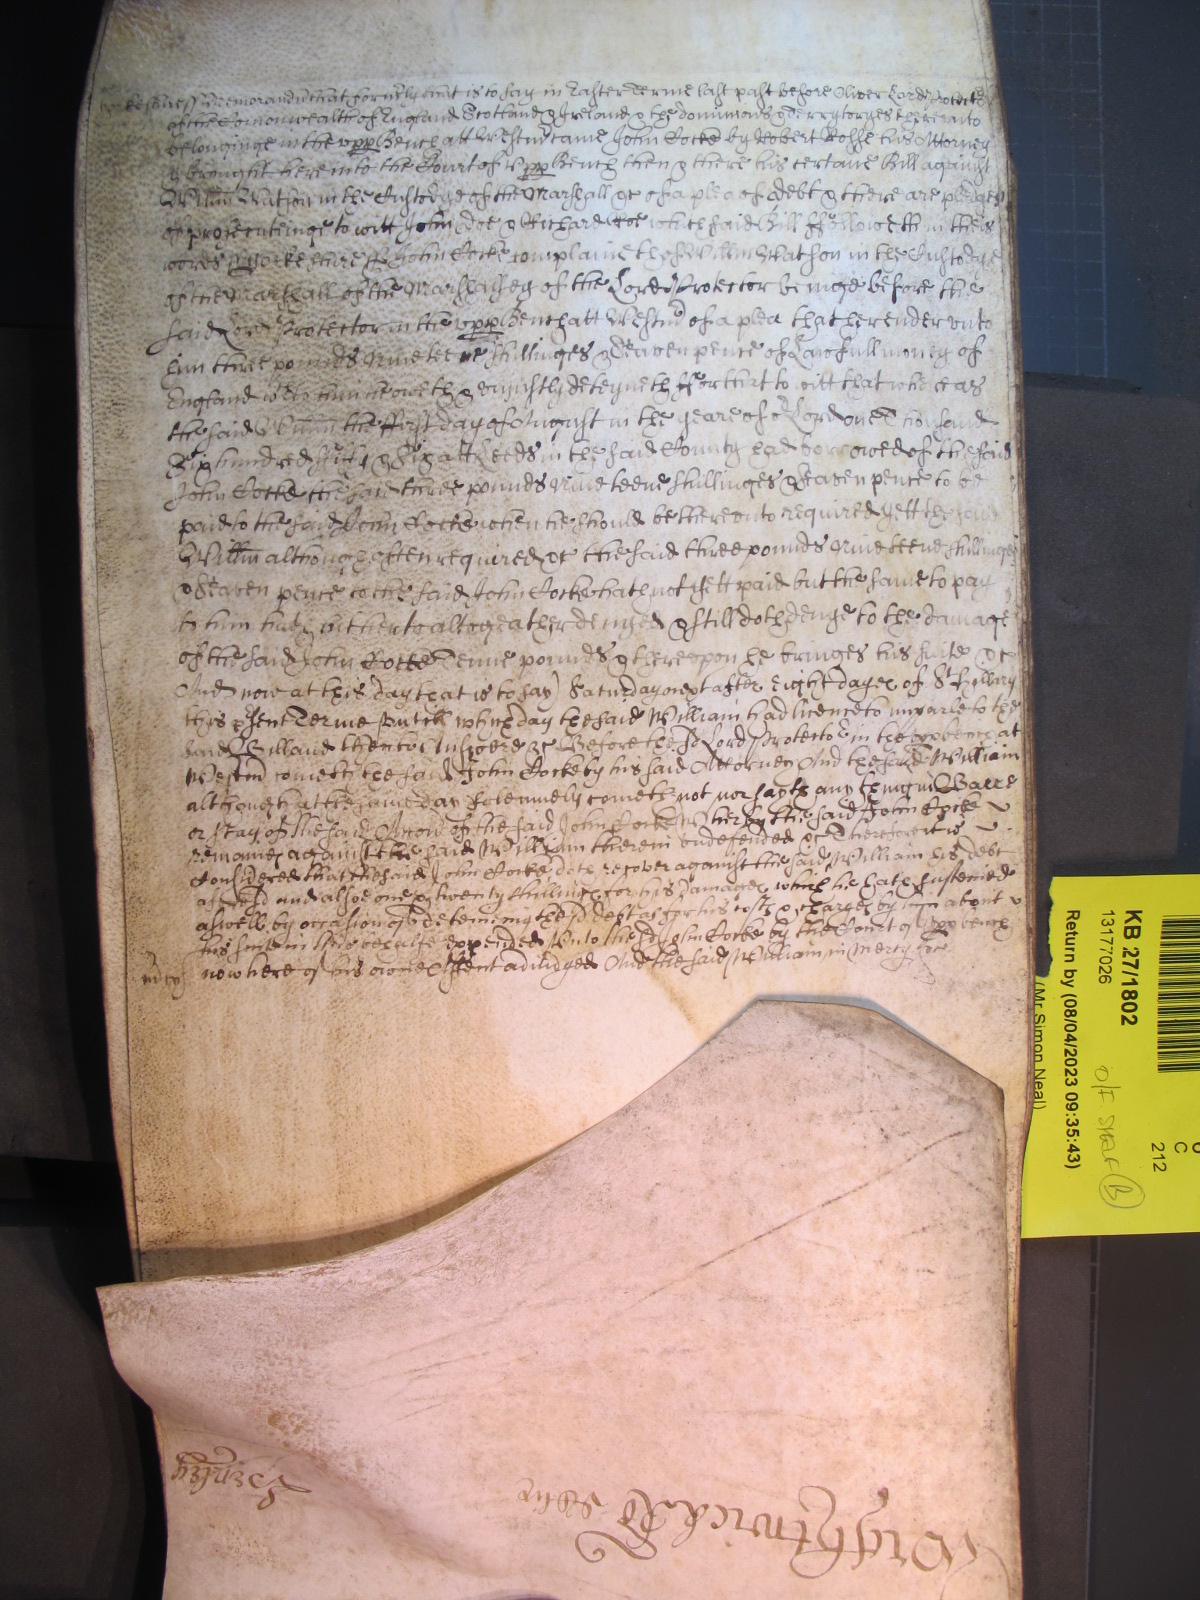 Memorandu that formerly that is to say in Easter Terme last past before Oliver Lord Protector
of the Comonwealth of England Scotland & Ireland & the dominions & Terrytoryes thereunto
belonginge in the upp Bench att Westmr came John Cocke by Robert Rosse his Attorney
& brought here into the Court of Upp Bench then & there his certaine Bill against
Willm Watson in the Custodye of the Marshall &c of a plea of debt & there are pledges
of prosecutinge to witt John Doe & Richard Roe which said Bill ffolloweth in theis
wordes Yorkeshire ss John Cocke complaineth of Willm Watson in the Custodye
of the Marshall of the Marshalsey of the Lord Protector beinge before the
said Lord Protector in the upp Bench att Westmr of a plea that he render unto
him three pounds Nineteene shillinges & Seaven pence of Lawfull money of
England wch to him he oweth & uniustly deteyneth ffor that to witt that whereas
the said Willm the ffirst day of August in the yeare of or Lord one Thousand
Six hundred fifty & Six att Leeds in the said County had borrowed of the said
John Cocke the said three pounds Nineteene shillinges & Seaven pence to be
paid to the said John Cocke when he should be thereunto required yett the said
Willm although often required &c the said three pounds Nineteene shillinges
& Seaven pence to the said John Cocke hath not yett paid but the same to pay
to him hath hitherto altogeather denyed & still doth denye to the damage
of the said John Cocke Tenne pounds & thereupon he bringes his suite &c
And now at this day that is to say Saturday next after eight dayes of St Hillary
this psent Terme untill which day the said William had licence to imparle to the
said Bill and then to Answere &c Before the sd Lord Protector in the upp bench at
Westmr cometh the said John Cocke by his said Attorney And the said William
although at the same day solemnely cometh not nor sayth any thing in Barre
or stay of the said Accon of the said John Cocke Whereby the said John Cocke
remaines against the said William therein undefended &c Therefore it is
Considered that the said John Cocke doe recover against the said William his debt
aforesd and alsoe one & twenty shillings for his Damages which he hath susteined
aswell by occasion of deteineing the sd debt as for his costs & charges by him about
his suite in this behalfe expended Unto the sd John Cocke by the Court of Upp bench
now here of his owne assent adiudged And the said William in Mercy &c
KB 27/1802
13177026
Return by (08/04/2023 09:35:43)
(Mr Simon Neal)
O/F. SHELF (B)
C
212
Wightwick